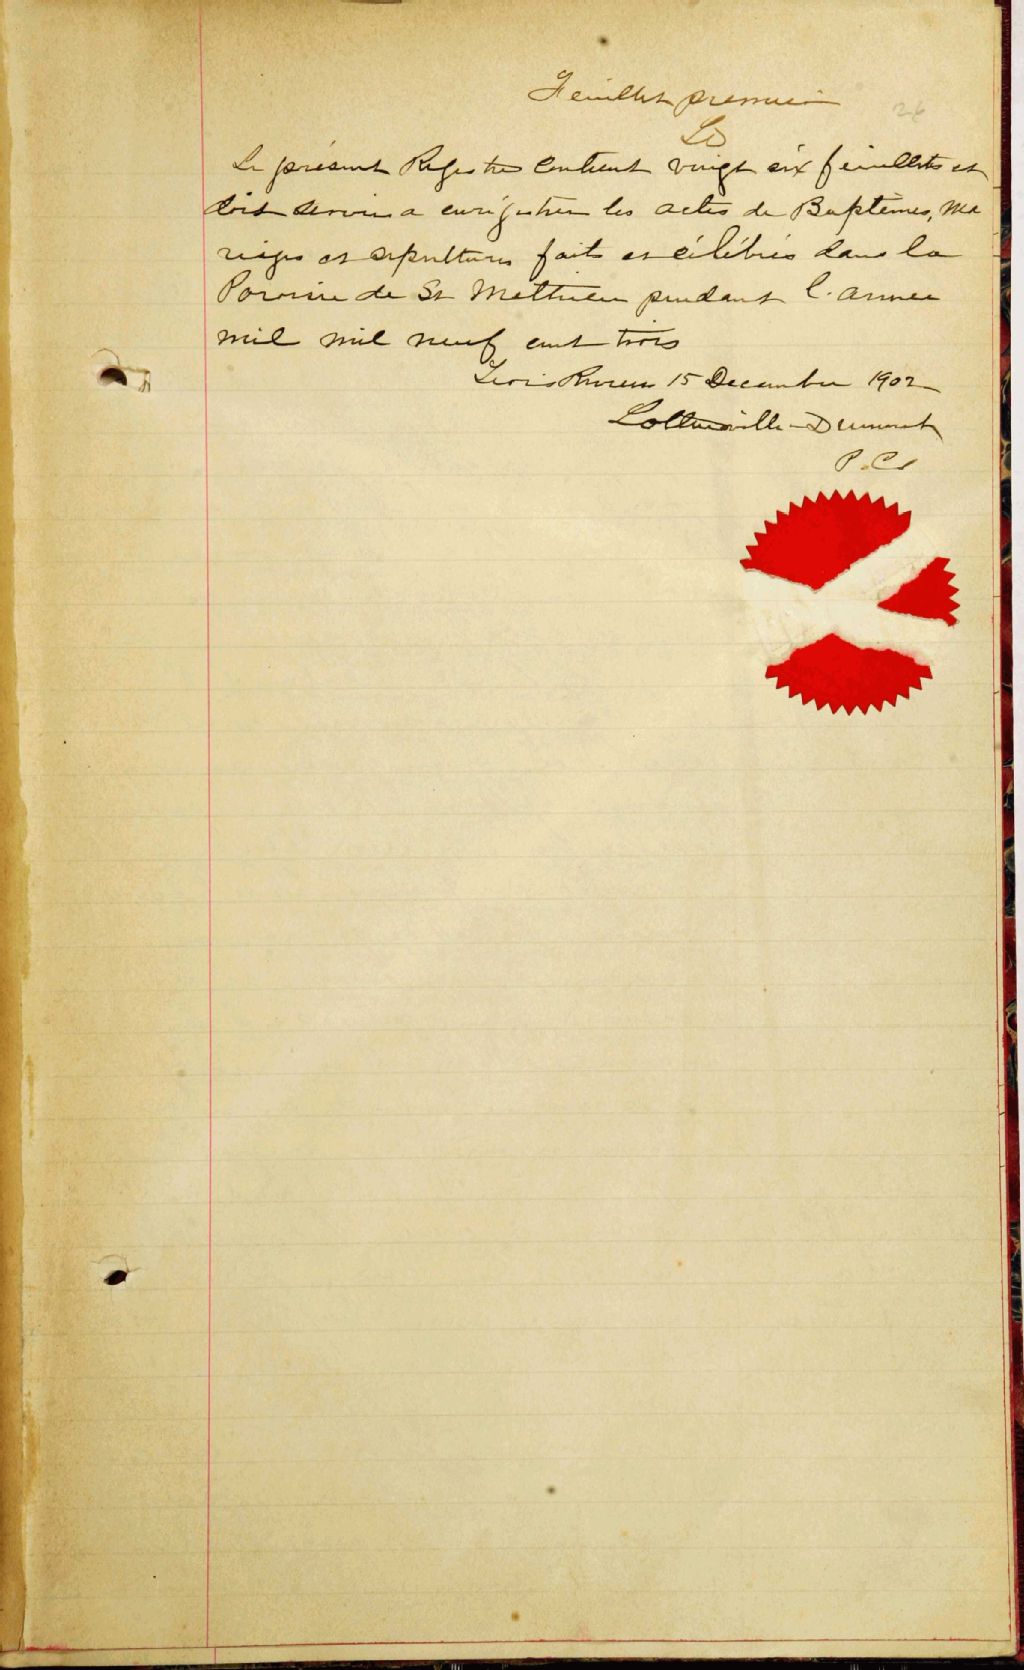 Feuillet premier
26
LD
Le présent Registre contient vingt six feuillets et
doit servir a enrégistrer les actes de Baptêmes, Ma
riages et sepultures faits et célébrés dans la
Paroisse de St Mathieu pendant l'année
mil mil neuf cent trois
Trois Rivieres 15 Decembre 1902
Lottinville - Dumont
P.C.